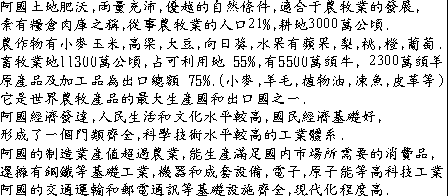 阿國土地肥沃,雨量充沛,優越的自然條件,適合于農牧業的發展,
素有糧倉肉庫之稱,從事農牧業的人口21%,耕地3000萬公頃.
農作物有小麥玉米,高梁,大豆,向日葵,水果有蘋果,梨,桃,橙,葡萄.
畜牧業地11300萬公頃,占可利用地 55%,有5500萬頭牛, 2300萬頭羊
原產品及加工品為出口總額 75%.(小麥,羊毛,植物油,凍魚,皮革等)
它是世界農牧產品的最大生產國和出口國之一.
阿國經濟發達,人民生活和文化水平較高,國民經濟基礎好,
形成了一個門類齊全,科學技術水平較高的工業體系.
阿國的制造業產值超過農業,能生產滿足國内市場所需要的消費品,
還擁有鋼鐵等基礎工業,機器和成套設備,電子,原子能等高科技工業
阿國的交通運輸和郵電通訊等基礎設施齊全,現代化程度高.